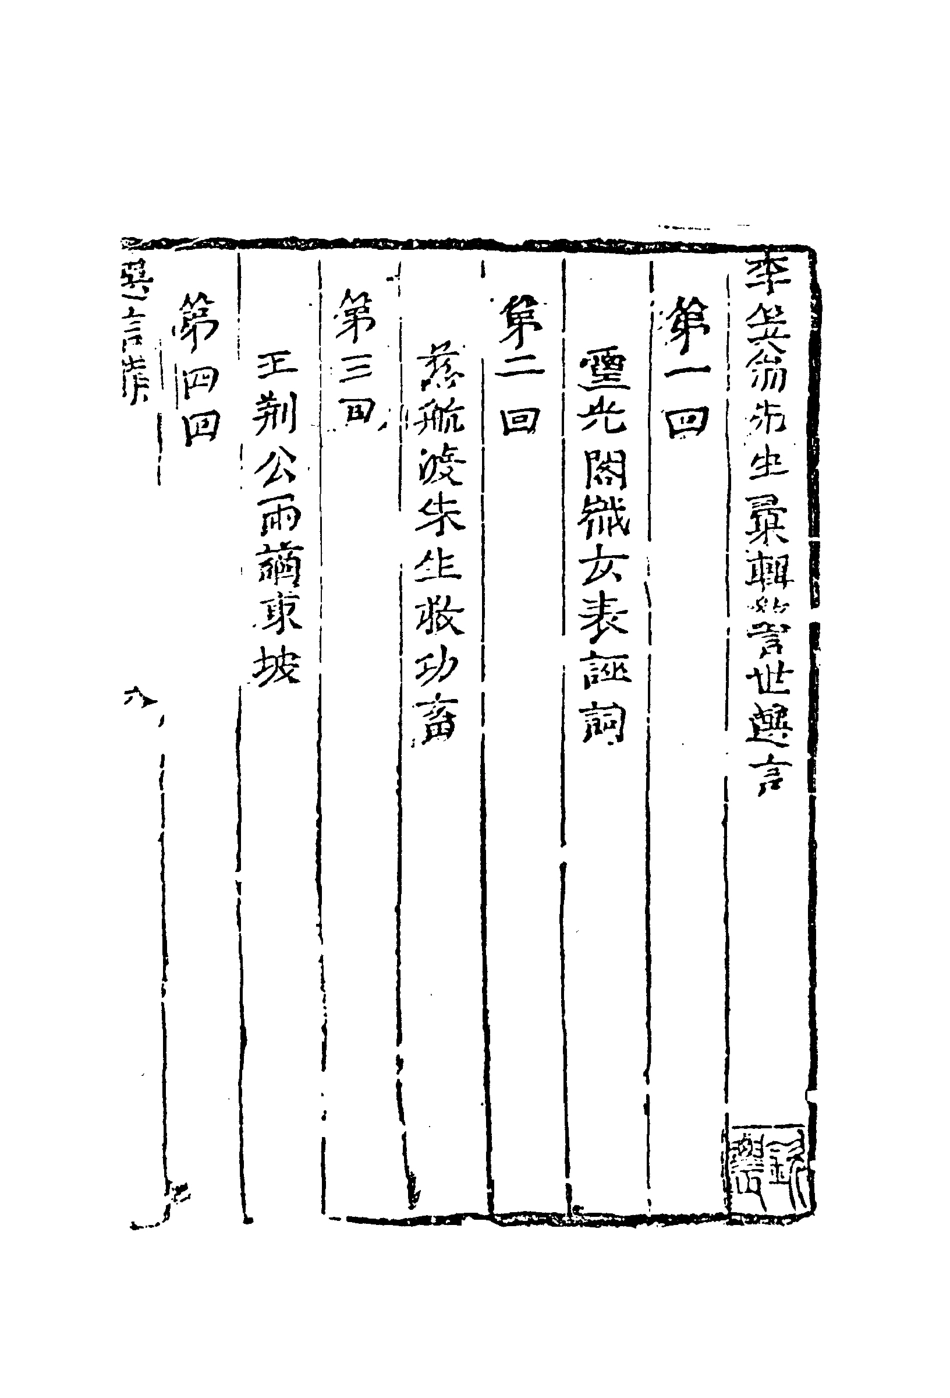 李笠翁先生彙輯警世選言
第一回
靈光閣織女表誣詞
第二回
慈航渡朱生救功畜
第三回
王荊公兩謫東坡
第四回
選言